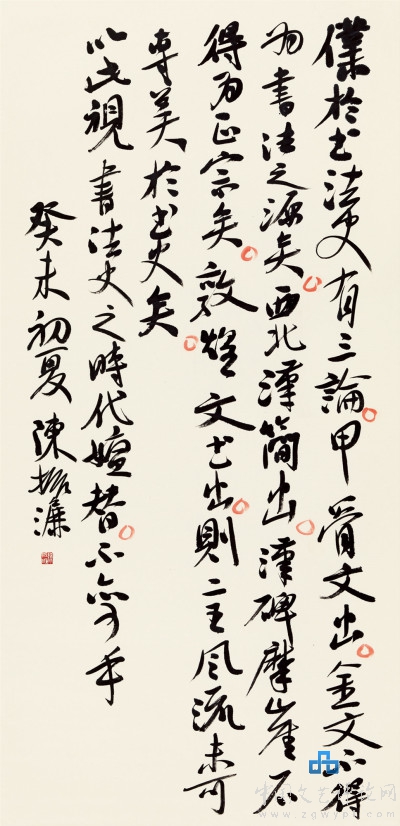 僕於书法史有三論甲骨文出金文不得
为書法之源矣西北漢簡出漢碑摩崖不
得为正宗矣敦煌文书出則二王風流未可
專美於书史矣
以此視書法史之時代嬗替不亦可乎
癸未初夏陳振濂
中国文艺评论网
www.zgwypl.com